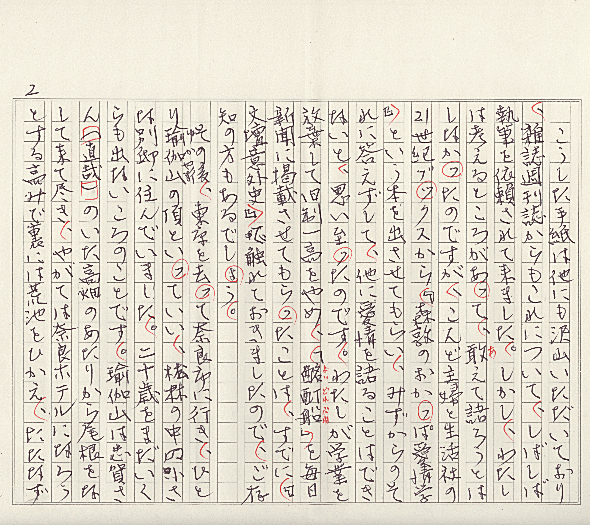 2
こうした手紙は他にも沢山いただいており
、雑誌週刊誌からもこれについて、しばしば
執筆を依頼されて来ました。しかし、わたし
は考えるところがあって、敢えて語ろうとは
しなかったのですが、こんど主婦と生活社の
21世紀ブックスから『森敦のおかっぱ愛情学
』という本を出させてもらい、みずからのそ
れに答えずして、他に愛情を語ることはでき
ないと、思い至ったのです。わたしが学業を
放棄して旧制一高をやめ、『酩酊船』を毎日
新聞に掲載させてもらったことは、すでに『
文壇意外史』に触れておきましたので、ご存
知の方もあるでしょう。
その後、東京を去って奈良市に行き、ひと
り瑜伽山の頂といっていい、松林の中の小さ
な別邸に住んでいました。二十歳をまだいく
らも出ないころのことです。瑜伽山は志賀さ
ん(直哉)のいた高畑のあたりから尾根をな
して来て尽き、やがては奈良ホテルになろう
とする高みで、裏には荒池をひかえ、たたなず